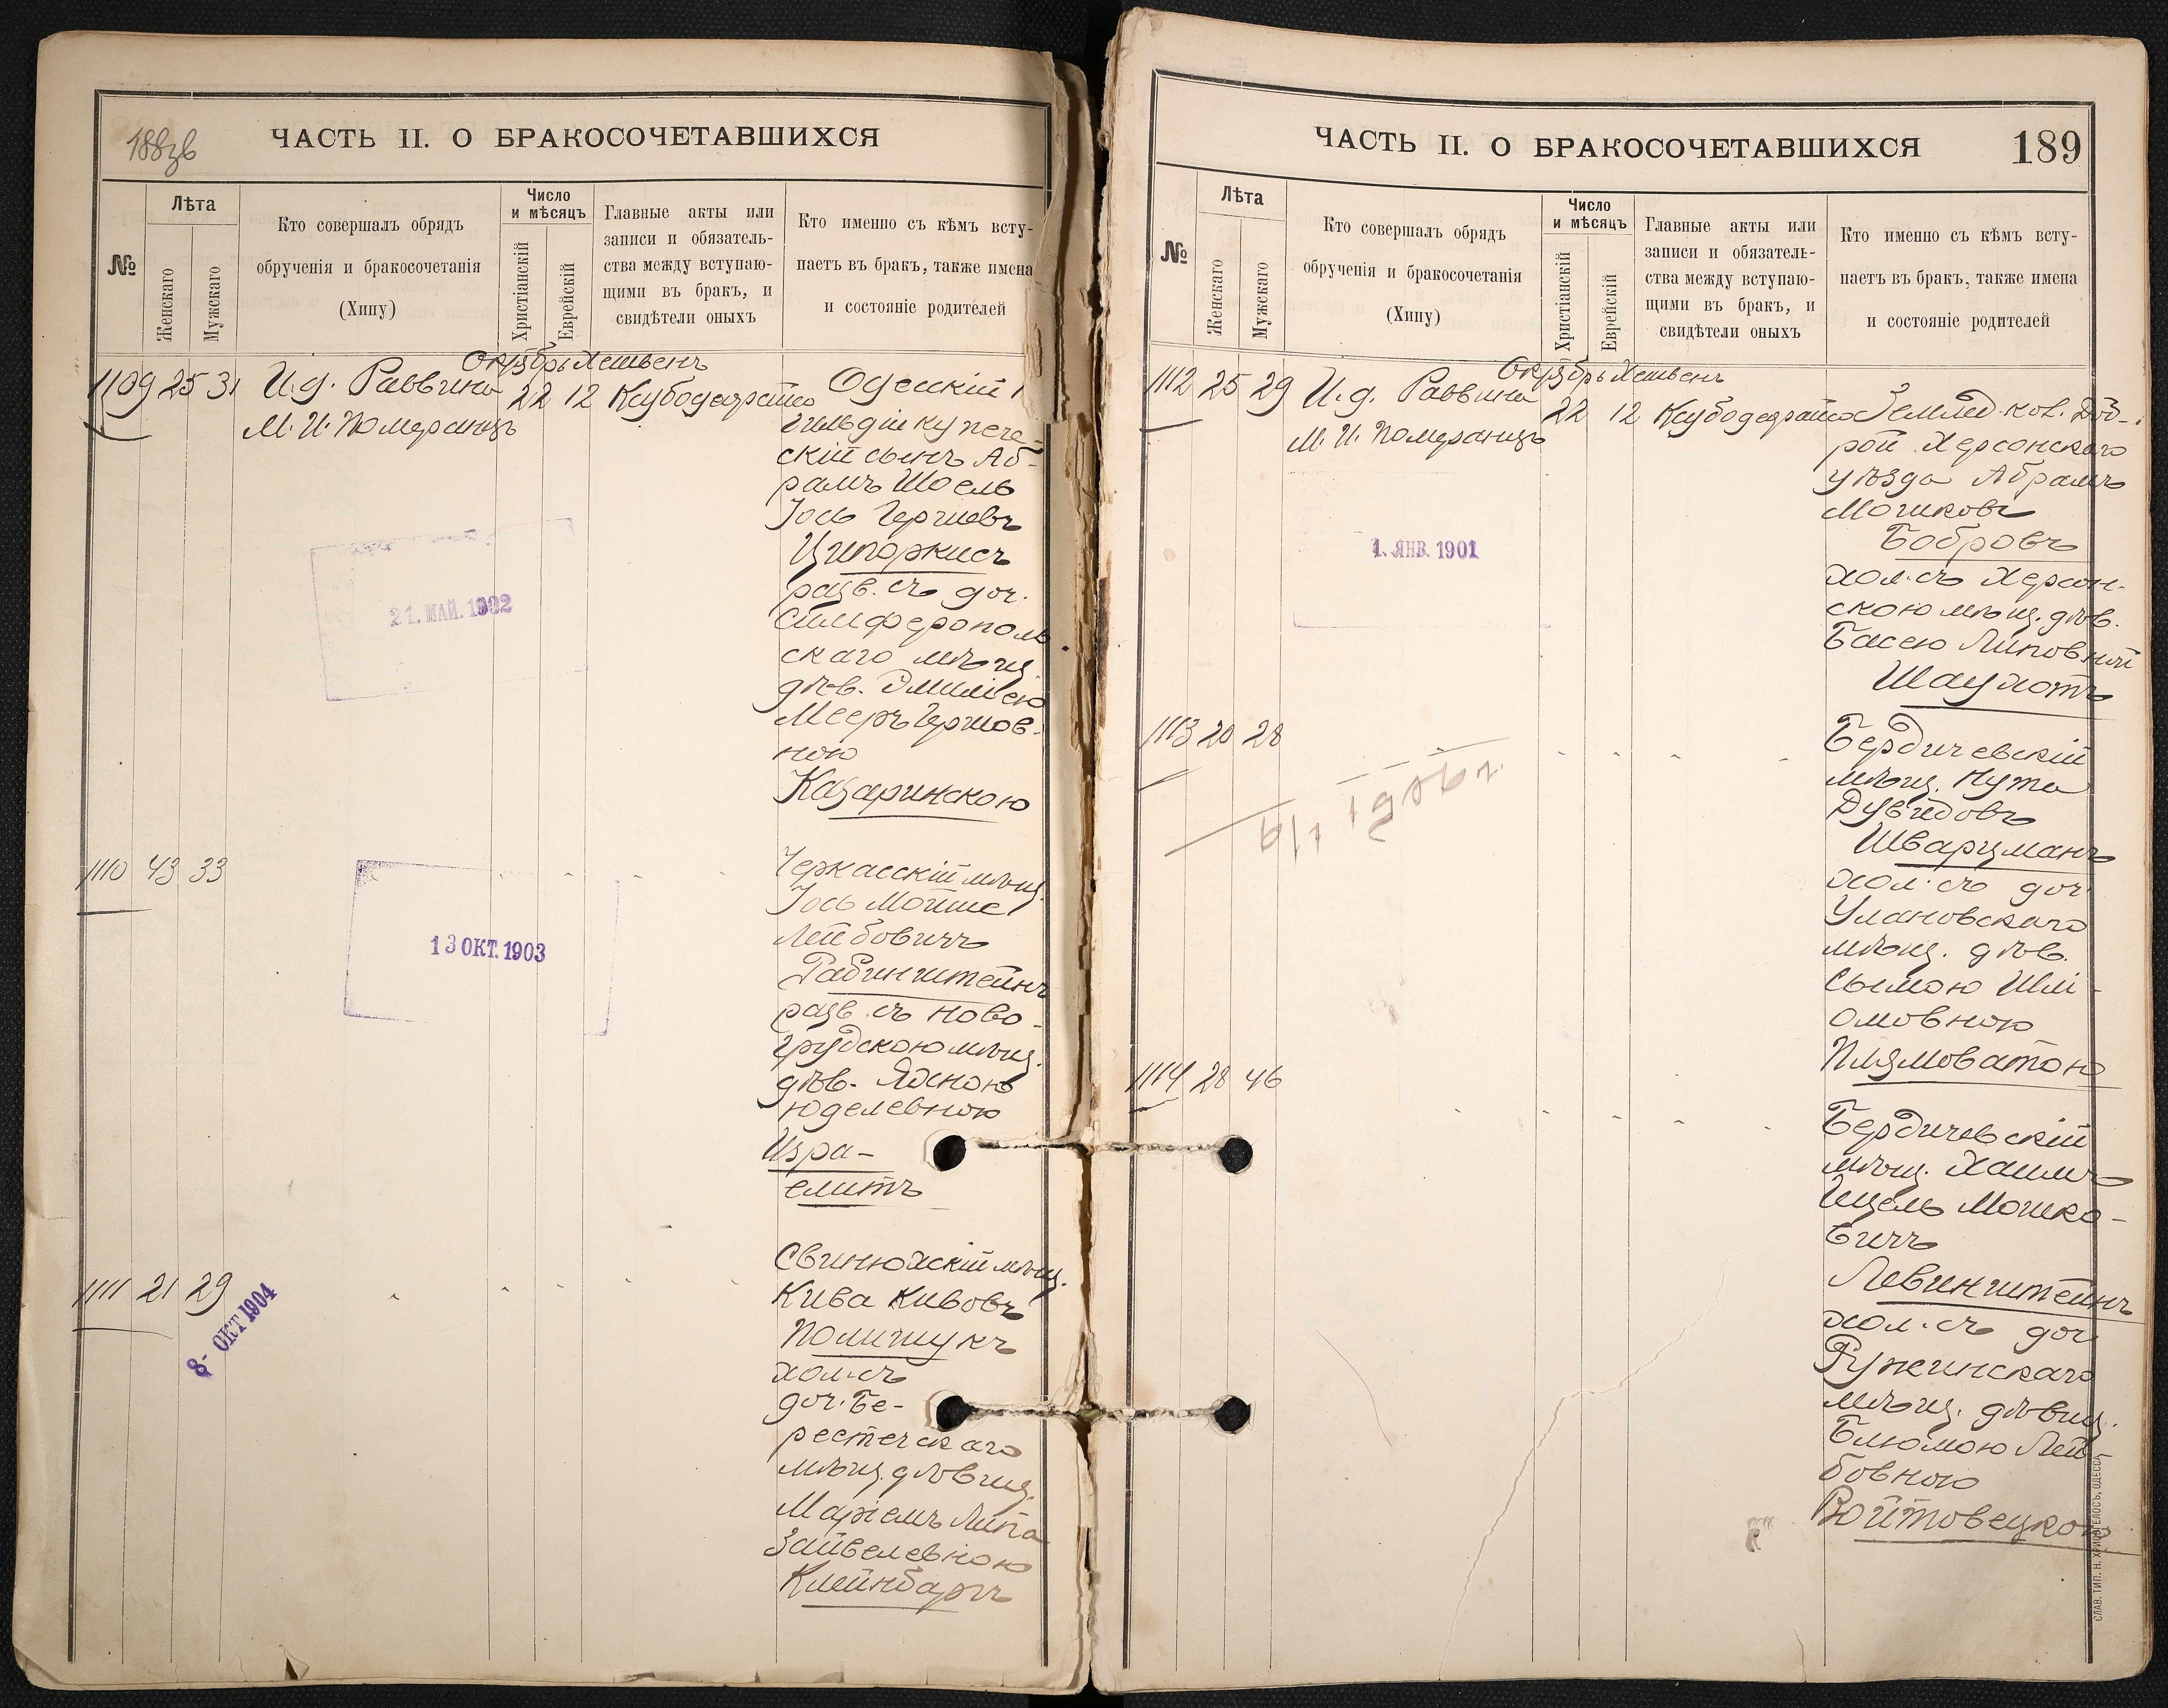 188зв
ЧАСТЬ II. О БРАКОСОЧЕТАВШИХСЯ
№
Лѣта
Женскаго
Мужскаго
Кто совершалъ обрядъ
обрученія и бракосочетанія
(Хипу)
Число
и мѣсяцъ
Христіанскій
Еврейскій
Главные акты или
записи и обязатель-
ства между вступаю-
щими въ бракъ, и
свидѣтели оныхъ
Кто именно съ кѣмъ всту-
паетъ въ бракъ, также имена
и состояніе родителей
Октябрь Хешвенъ
1109 25 31 И.д. Раввина 22 12 Ксубодераито
М. И. Померанцъ
Одесскій 1
гильдіи купече-
скій сынъ Аб-
рамъ Шоель
Іось Гершовъ
Ципоркисъ
разв. съ доч.
Симферополь
скаго мѣщ.
дѣв. Эмиліею
Мееръ Гершов-
ною
Казаринскою
21. МАЙ. 1902
1110 43 33
Черкасскій мѣщ.
Іось Мойше
Лейбовичъ
Рабинштейнъ
разв. съ ново-
грудскою мѣщ.
дѣв.
Юделевною
Изра-
елитъ
13 ОКТ. 1903
1111 21 29
Свинюхскій мѣщ.
Кива Кивовъ
Полищукъ
хол. съ
доч. Бе-
рестечскаго
мѣщ. дѣвиц.
Маріемъ Липа
Зайвелевною
Клейнбартъ
8- ОКТ 1904
ЧАСТЬ II. О БРАКОСОЧЕТАВШИХСЯ
189
№
Лѣта
Женскаго
Мужскаго
Кто совершалъ обрядъ
обрученія и бракосочетанія
(Хипу)
Число
и мѣсяцъ
Христіанскій
Еврейскій
Главные акты или
записи и обязатель-
ства между вступаю-
щими въ бракъ, и
свидѣтели оныхъ
Кто именно съ кѣмъ всту-
паетъ въ бракъ, также имена
и состояніе родителей
Октябрь Хешвенъ
1112 25 29 И.д. Раввина 22 12 Ксубодераито
М. И. Померанцъ
Землед. кол. Доб-
рой Херсонскаго
уѣзда Абрамъ
Мошковъ
Бобровъ
хол. съ Херсон-
скою мѣщ. дѣв.
Басею Липовной
Шаулотъ
1. ЯНВ. 1901
1113 20 28
Бердичевскій
мѣщ. Нута
Дувидовъ
Шварцманъ
хол. съ доч.
Улановскаго
мѣщ. дѣв.
Сымою Шлі-
омовною
Плямоватою
1114 28 46
Бердичевскій
мѣщ. Хаимъ
Ицель Мошко-
вичъ
Левинштейнъ
хол. съ доч.
Ружинскаго
мѣщ. дѣвиц.
Блюмою Лей-
бовною
Войтовецкою
СЛАВ. ТИП. Н. ХРИСОГЕЛОСЪ, ОДЕССА